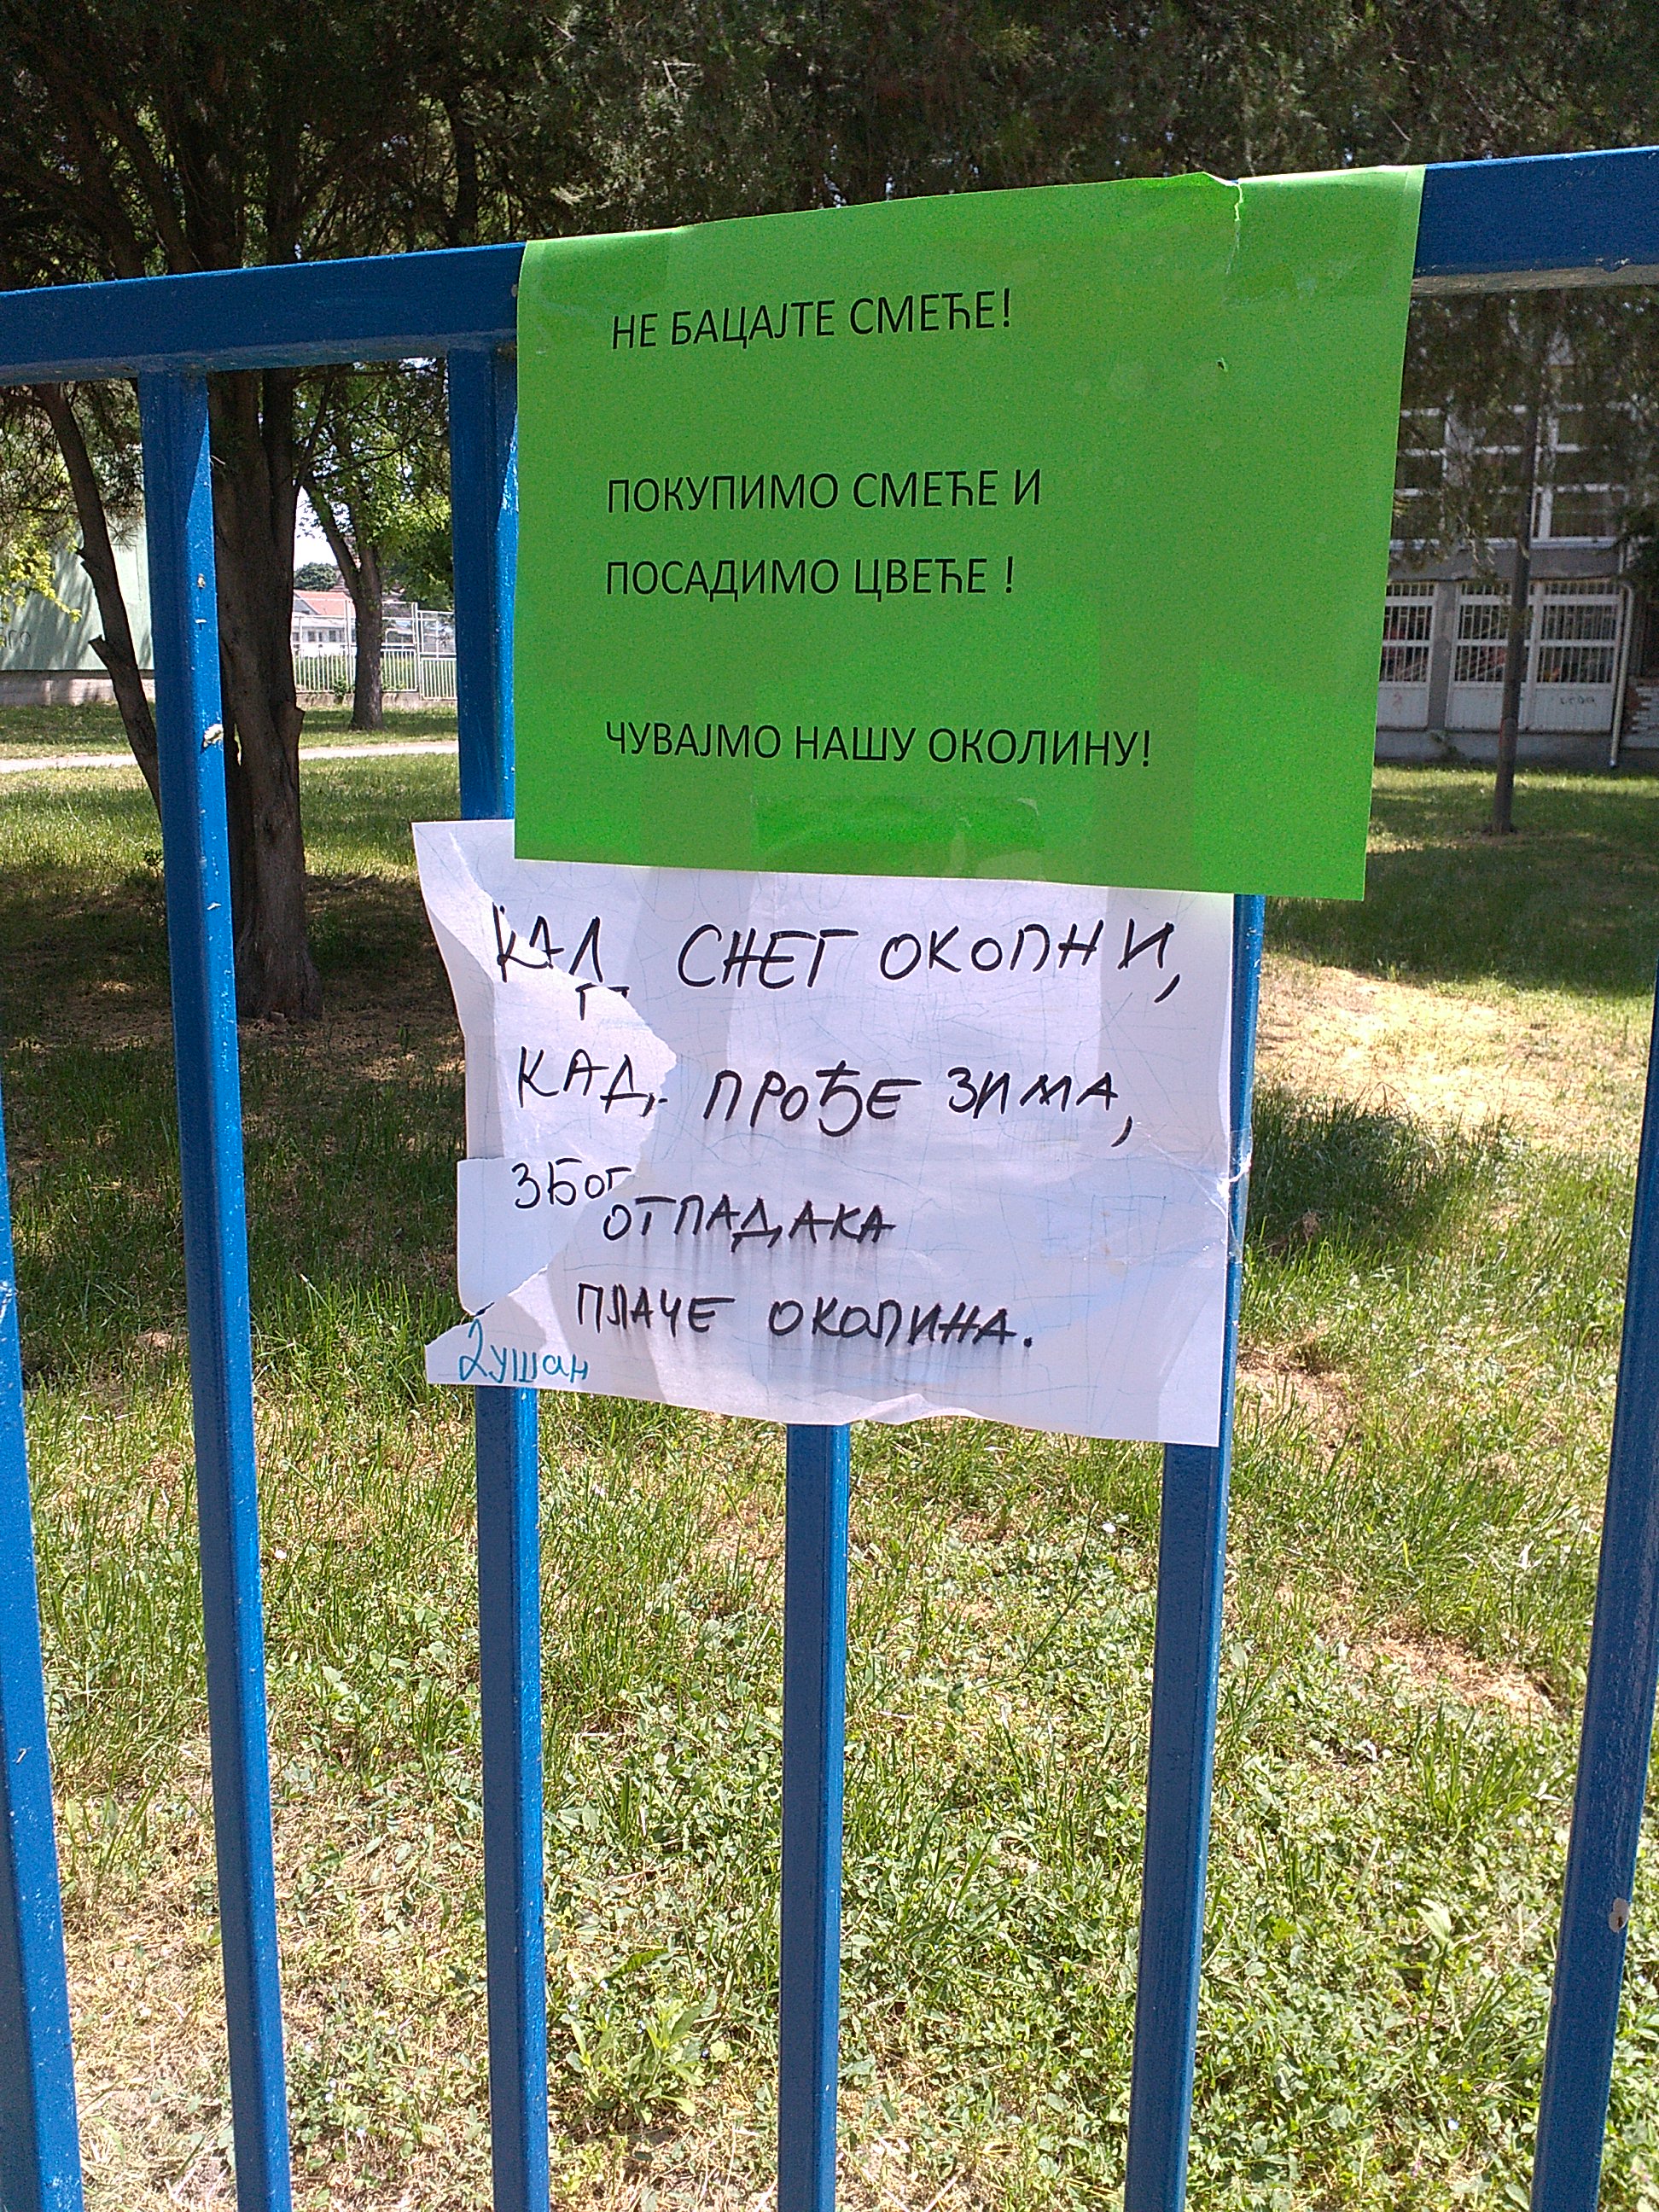 НЕ БАЦАЈТЕ СМЕЋЕ!
ПОКУПИМО СМЕЋЕ И
ПОСАДИМО ЦВЕЋЕ !
ЧУВАЈМО НАШУ ОКОЛИНУ!
КАД СНЕГ ОКОПНИ,
КАД ПРОЂЕ ЗИМА,
ЗБОГ
ОТПАДАКА
ПЛАЧЕ ОКОЛИНА.
Душан